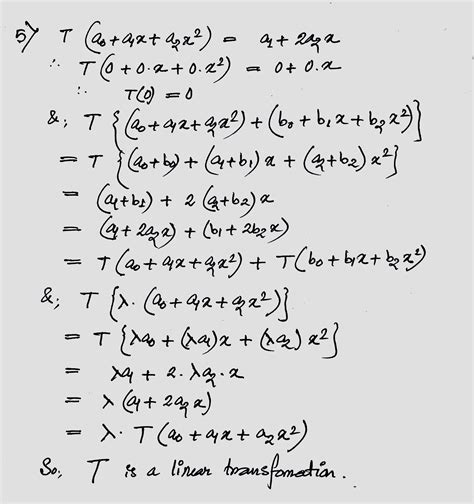 5) T (a₀+a₁x+a₂x²) = a₁+2a₂x
∴ T(0+0·x+0·x²) = 0+0·x
∴ T(0) = 0
&; T {(a₀+a₁x+a₂x²)+(b₀+b₁x+b₂x²)}
= T {(a₀+b₀)+(a₁+b₁)x+(a₂+b₂)x²}
= (a₁+b₁)+2(a₂+b₂)x
= (a₁+2a₂x)+(b₁+2b₂x)
= T(a₀+a₁x+a₂x²)+T(b₀+b₁x+b₂x²)
&; T {λ·(a₀+a₁x+a₂x²)}
= T {λa₀+(λa₁)x+(λa₂)x²}
= λa₁+2·λa₂·x
= λ(a₁+2a₂x)
= λ·T(a₀+a₁x+a₂x²)
So, T is a linear transfomation.